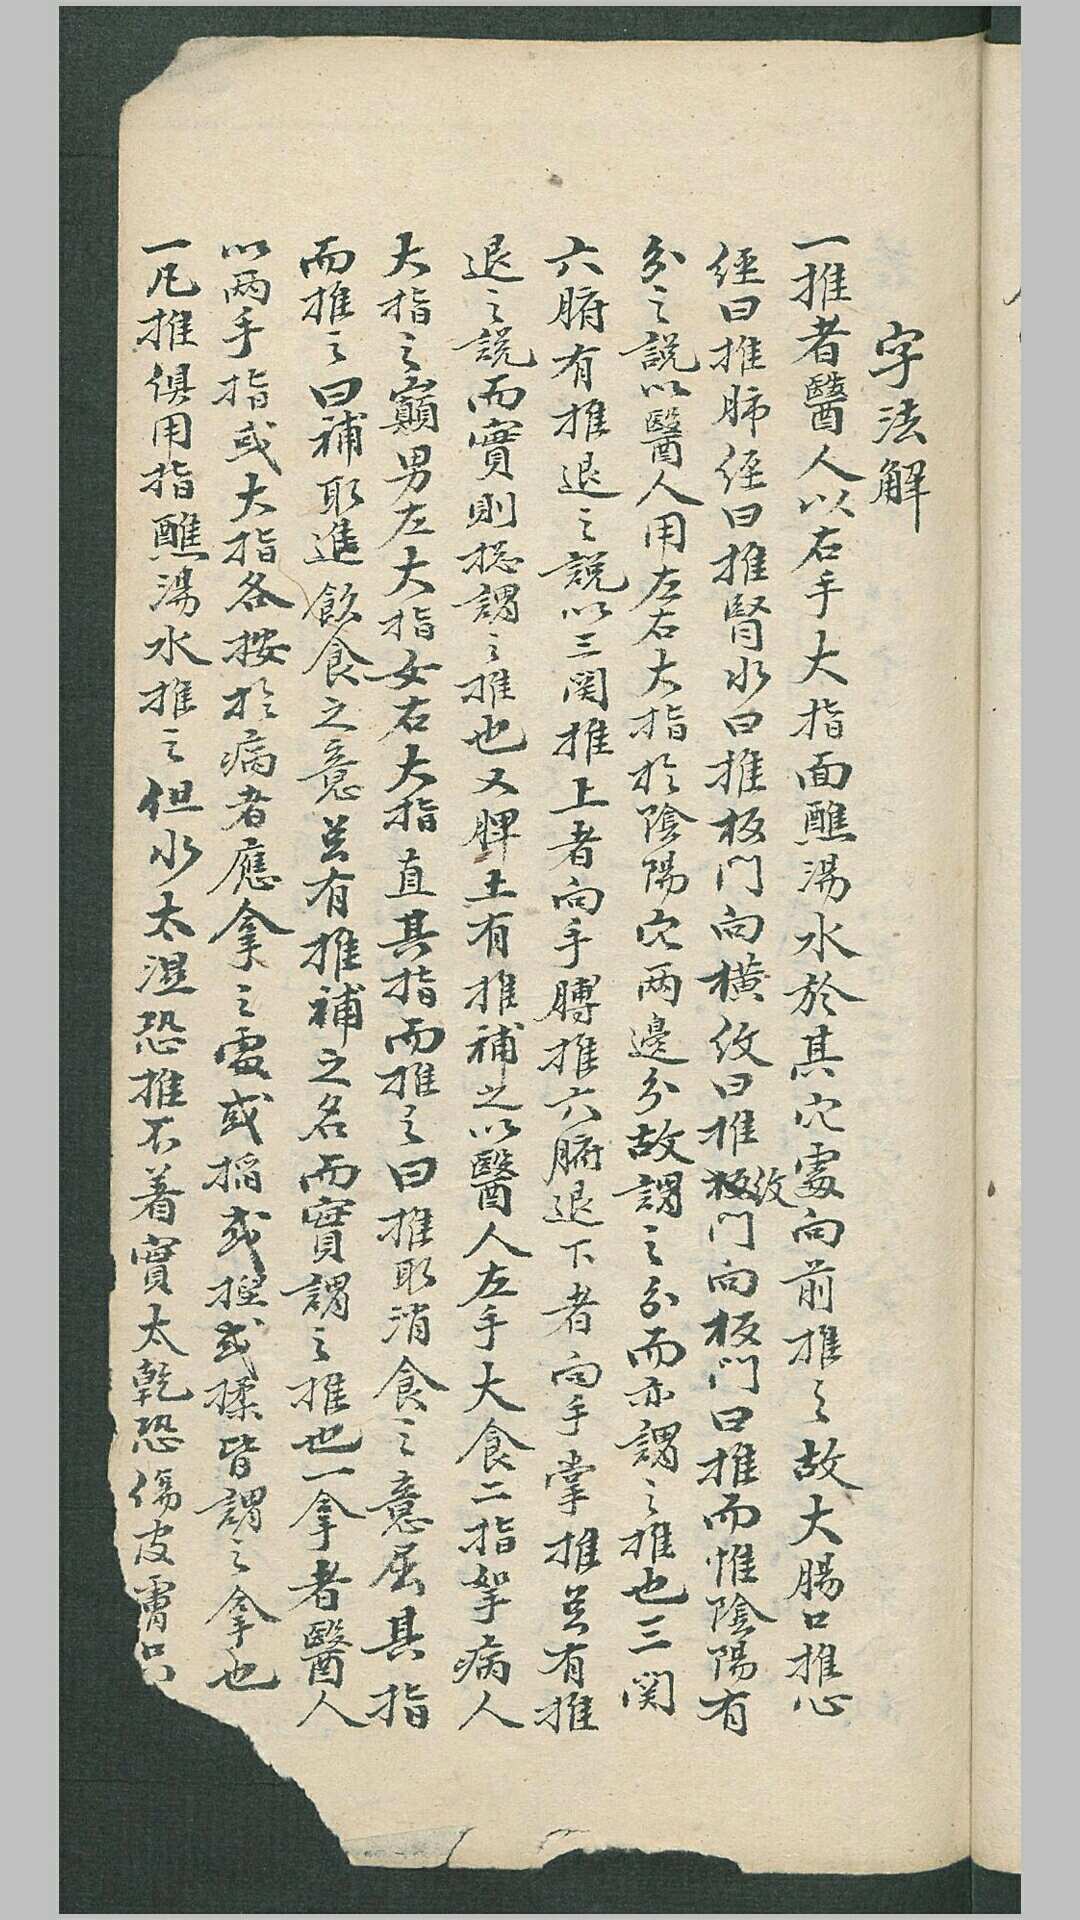 字法解
一推者醫人以右手大指面醮湯水於其穴處向前推之故大腸曰推心
經曰推肺經曰推腎水曰推板門向橫紋曰推紋板門向板門曰推而惟陰陽有
分之說以醫人用左右大指於陰陽穴兩邊分故謂之分而亦謂之推也三関
六腑有推退之說以三関推上者向手膊推六腑退下者向手掌推總有推
退之說而實則總謂之推也又脾土有推補之以醫人左手大食二指拏病人
大指之巔男左大指女右大指直其指而推之曰推取消食之意屈其指
而推之曰補取進飲食之意總有推補之名而實謂之推也一拿者醫人
以兩手指或大指各按於病者應拿之處或掐或捏或揉皆謂之拿也
一凡推俱用指醮湯水推之但水太濕恐推不着實太乾恐傷皮膚